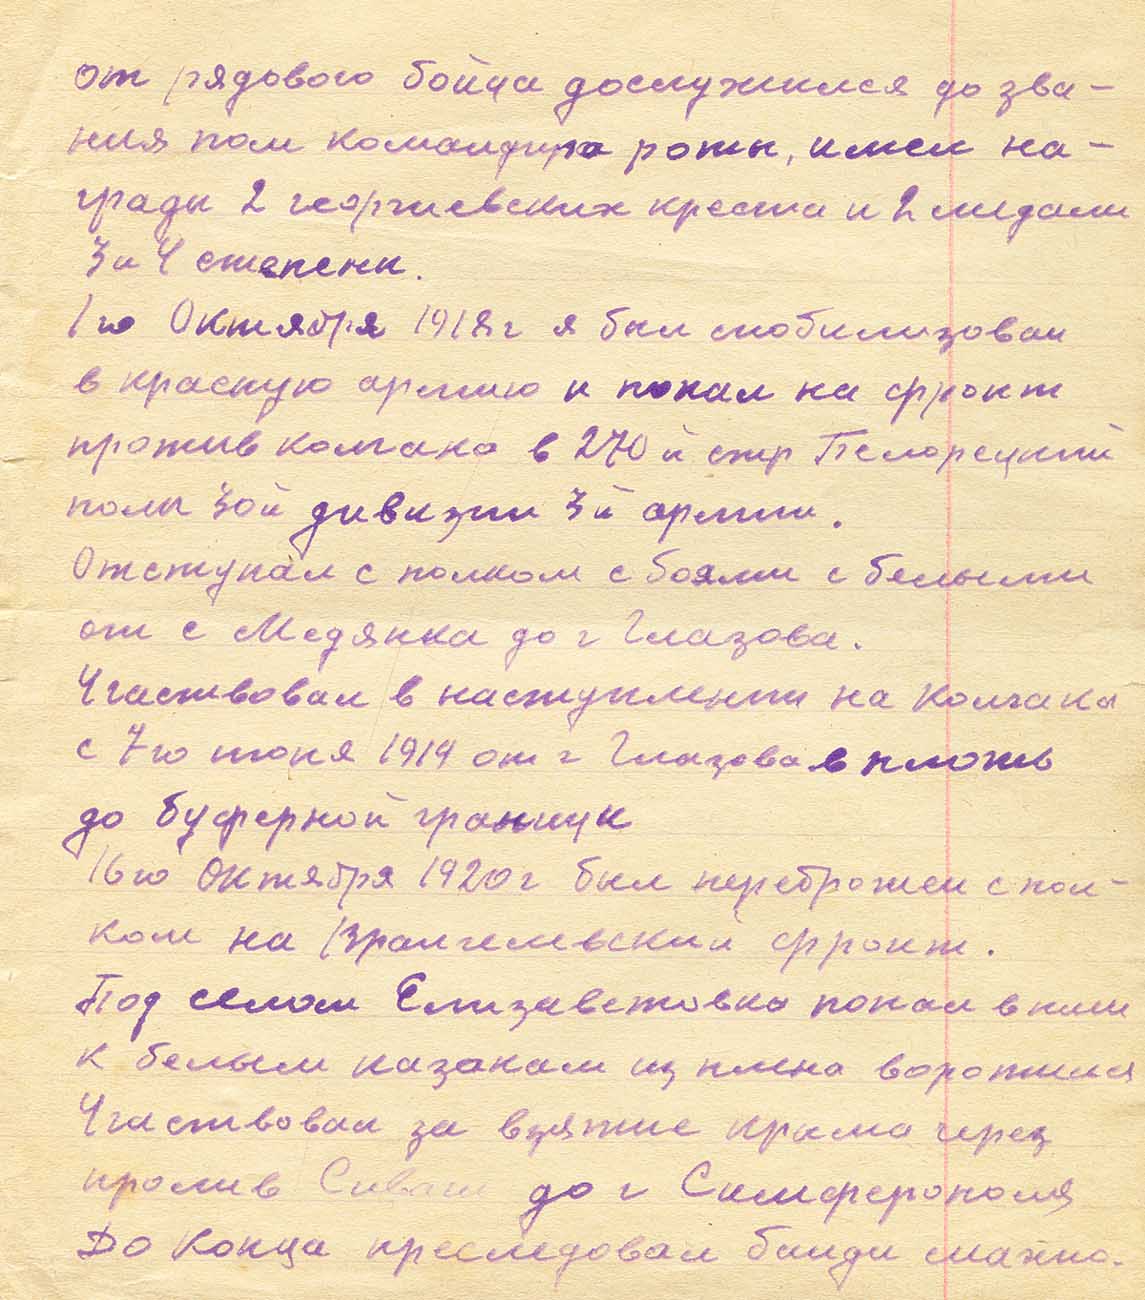 от рядового бойца дослужился до зва-
ния пом командира роты, имел на-
грады 2 георгиевских креста и 2 медали
3 и 4 степени.
1го Октября 1918г я был змобилизован
в красную армию и попал на фронт
против колчака в 270й стр Белорецкий
полк 30й дивизии 3й армии.
Отступал с полком с боями с белыми
от с Медянка до г Глазова.
Участвовал в наступлении на Колчака
с 7го июня 1919 от г Глазова в плоть
до буферной границы
16го Октября 1920г был переброжен с пол-
ком на Врангелевский фронт.
Под селом Елизаветовка попал в плен
к белым казакам из плена воротился
Участвовал за взятие крыма через
пролив Сиваш до г Симферополя
До конца преследовал банди махно.